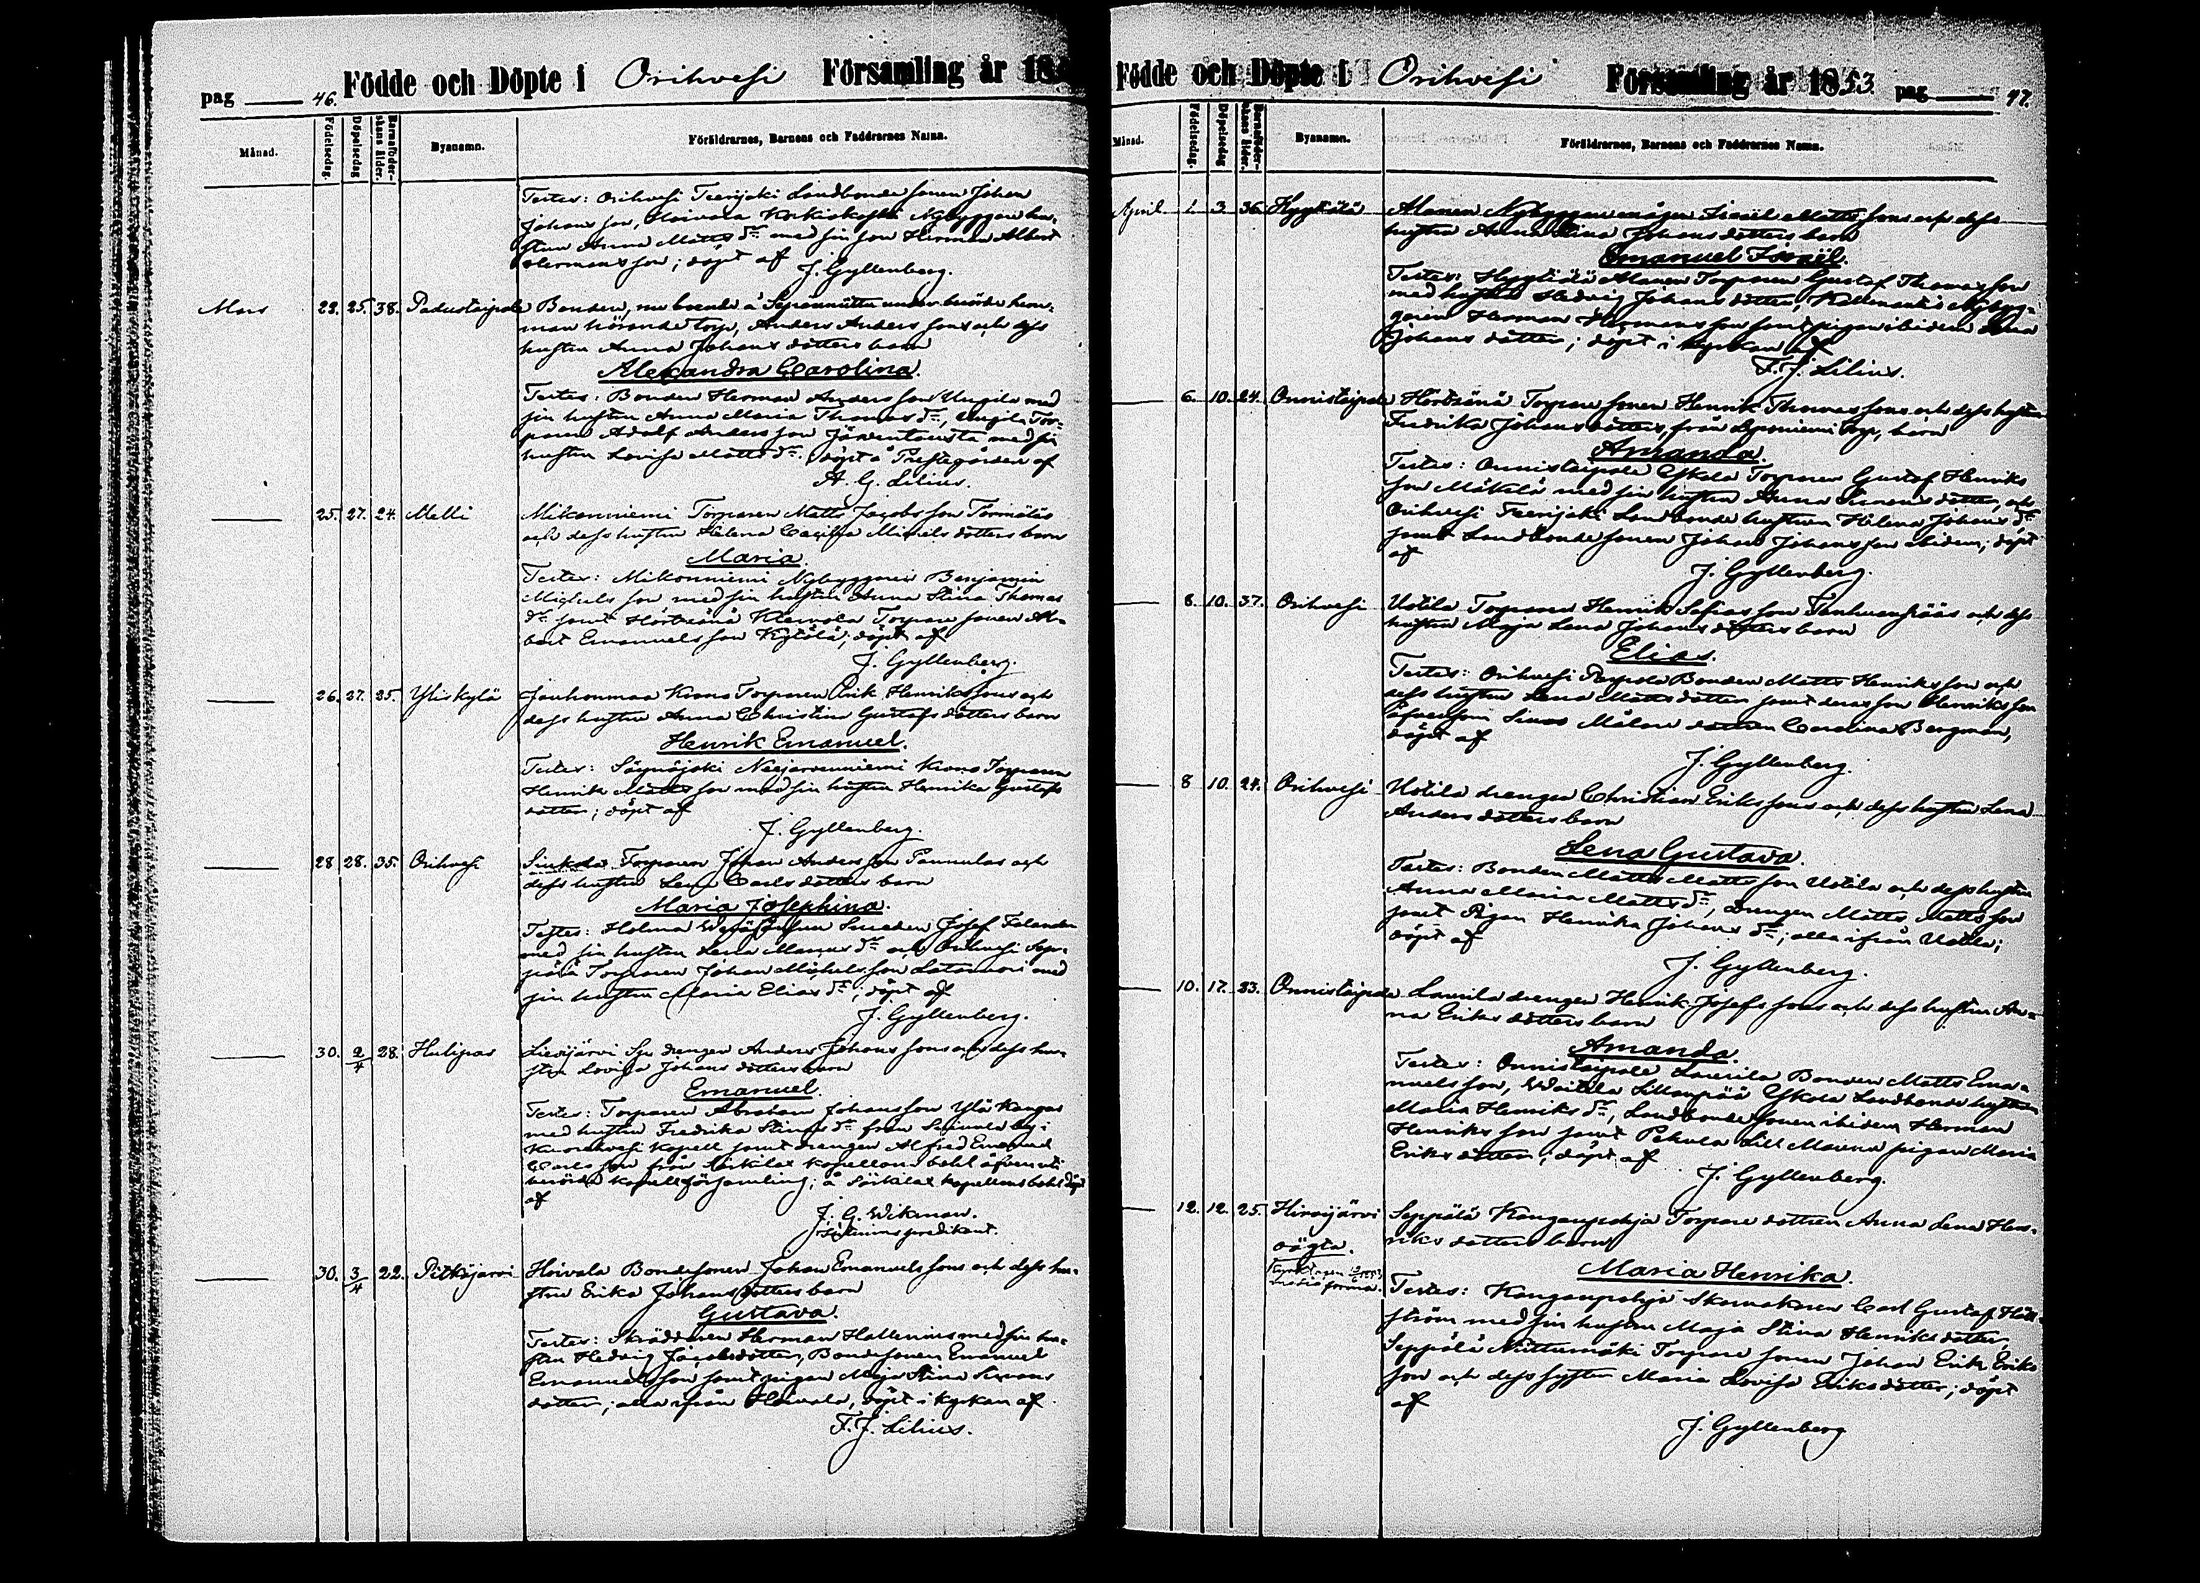 pag 46. Födde och Döpte i Orihvesi Församling år 18
Månad. Födelsedag. Döpelsedag Barnaföderskans ålder. Bynamn. Föräldrarnes, Barnens och Faddrarnes Namn.
Testes: Orihvesi Teerijoki Landbonde sonen Johan
Johansson, Hoivala Nybyggare hu-
strun Anna Matts dr med sin son Herman Albert
Hermansson; döpt af J. Gyllenberg.
Mars 22. 25. 38. Padustaipale Bonden, nu boende å under berörde hem-
man hörande torp, Anders Anderssons och dess
hustru Anna Johansdotters barn
Alexandra Carolina.
Testes: Bonden Herman Andersson Uugila med
sin hustru Anna Maria Thomas dr, Uugila Tor-
paren Adolf Andersson Järventausta med sin
hustru Lovisa Matts dr. döpt å Prestegården af
A. G. Lilius.
25. 27. 24. Melli Mikonniemi Torparen Matts Jacobsson
och dess hustru Helena Cecilia Michelsdotters barn
Maria.
Testes: Mikonniemi Nybyggaren Benjamin
Michelsson med sin hustru Anna Stina Thomas
dr samt Hörtsänä Torpare sonen Al-
bert Emanuelsson Kytölä; döpt af
J. Gyllenberg.
26. 27. 25. Yliskylä Jouhonmaa Krono Torparen Erik Henrikssons och
dess hustru Anna Christin Gustafsdotters barn
Henrik Emanuel.
Testes: Säynäjoki Neejarvenniemi Krono Torparen
Henrik Mattsson med sin hustru Henrika Gustafs
dotter; döpt af
J. Gyllenberg.
28. 28. 35. Orihvesi Torparen Johan Andersson Pannulas och
dess hustru Lena Carlsdotters barn
Maria Josephina.
Testes: Holma Smeden Josef Felender
med sin hustru Lena dr och Orihvesi Sep-
pälä Torparen Johan Michelsson Latomäki med
sin hustru Maria Elias dr; döpt af
J. Gyllenberg.
30. 2/4 28. Hulipas drengen Anders Johanssons och dess hu-
stru Lovisa Johansdotters barn
Emanuel.
Testes: Torparen Abraham Johansson Ylä Kangas
med hustru Fredrika Stinas dr från by i
Kuorehvesi Kapell samt drengen Alfred Emanuel
Carlsson från Särkilax kapellans bohl äfven uti
berörde kapellförsamling; å Särkilax kapellans bohl döpt
af
J. G. Wikman.
30. 3/4 22. Pitkäjärvi Hoivala Bondesonen Johan Emanuelssons och dess hu-
stru Erika Johansdotters barn
Gustava.
Testes: Skräddaren Herman Hallenius med sin hu-
stru Hedvig Jacobsdotter, Bondesonen Emanuel
Emanuelsson samt pigan Maja Stina Simons
dotter; alla ifrån Hoivala, döpt i kyrkan af
F. J. Lilius.
Födde och Döpte i Orihvesi Församling år 1853 pag 47.
Månad. Födelsedag. Döpelsedag Barnaföderskans ålder. Bynamn. Föräldrarnes, Barnens och Faddrarnes Namn.
April 1. 3. 36. Hyytiälä Alanen Nybyggare mågen Israel Mattssons och dess
hustru Anna Stina Johansdotters barn
Emanuel Israël.
Testes: Hyytiälä Alanen Torparen Gustaf Thomasson
med hustru Hedvig Johansdotter, Nybyg-
garen Herman Hermansson samt pigan ibidem Lena
Johansdotter; döpt i kyrkan af
F. J. Lilius.
6. 10. 24. Onnistaipale Hörtsänä Torpare sonen Henrik Thomassons och dess hustru
Fredrika Johansdotters, från torp, barn
Amanda.
Testes: Onnistaipale Yskola Torparen Gustaf Henriks
son Mäkelä med sin hustru Anna Simonsdotter, och
Orihvesi Teerijoki Landbonde hustrun Helena Johans dr
samt Landbondesonen Johan Johansson ibidem; döpt
af
J. Gyllenberg.
8. 10. 37. Orihvesi Uotila Torparen Henrik och dess
hustru Maja Lena Johansdotters barn
Elias.
Testes: Orihvesi Bonden Matts Henriksson och
dess hustru Lena Mattsdotter samt deras son Henriksson
äfvensom Målare dottren Carolina Bergman,
döpt af
J. Gyllenberg.
8 10. 24. Orihvesi Uotila drengen Christian Erikssons och dess hustru Lena
Andersdotters barn
Lena Gustava.
Testes: Bonden Matts Mattsson Uotila och dess hustru
Anna Maria Matts dr, Drengen Matts Mattsson
samt Pigan Henrika Johans dr; alla ifrån Uotila;
döpt af
J. Gyllenberg.
10. 17. 23. Onnistaipale Laurila drengen Henrik Josefssons och dess hustru An-
na Eriksdotters barn
Amanda.
Testes: Onnistaipale Laurila Bonden Matts Ema-
nuelsson, Yskola Landbonde hustrun
Maria Henriks dr, Landbonde sonen ibidem Herman
Henriksson samt Pekula Lill Maunu pigan Maria
Eriksdotter; döpt af
J. Gyllenberg.
12. 12. 25. Hirsijärvi Seppälä Kangaspohja Torpare dottren Anna Lena Hen-
riksdotters barn
oägta.
Maria Henrika.
Testes: Kangaspohja Skomakaren Carl Gustaf Häll-
ström med sin hustru Maja Stina Henriksdotter,
Seppälä Niittumäki Torpare sonen Johan Erik Eriks
son och dess syster Maria Lovisa Eriksdotter; döpt
af
J. Gyllenberg